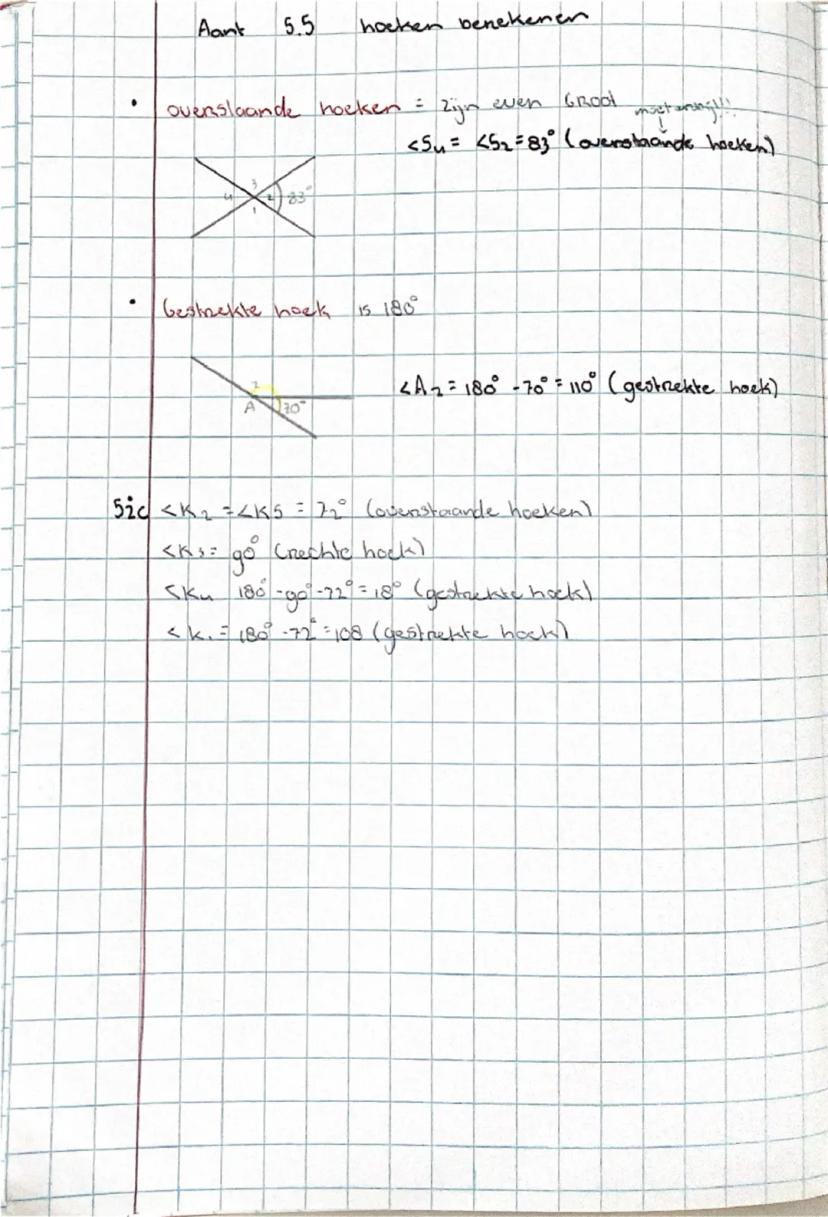 Aant 5.5 hoeken berekenen
• overstaande hoeken = zijn even Groot moet erbij!!!
<S4 = <S2 = 83° (overstaande hoeken)
3
4 2 83°
1
• Gestrekte hoek is 180°
2
A 70°
<A2 = 180° - 70° = 110° (gestrekte hoek)
51c <K2 = <K5 = 72° (overstaande hoeken)
<K3 = 90° (rechte hoek)
<K4 180° - 90° - 72° = 18° (gestrekte hoek)
<K1 = 180° - 72° = 108 (gestrekte hoek)